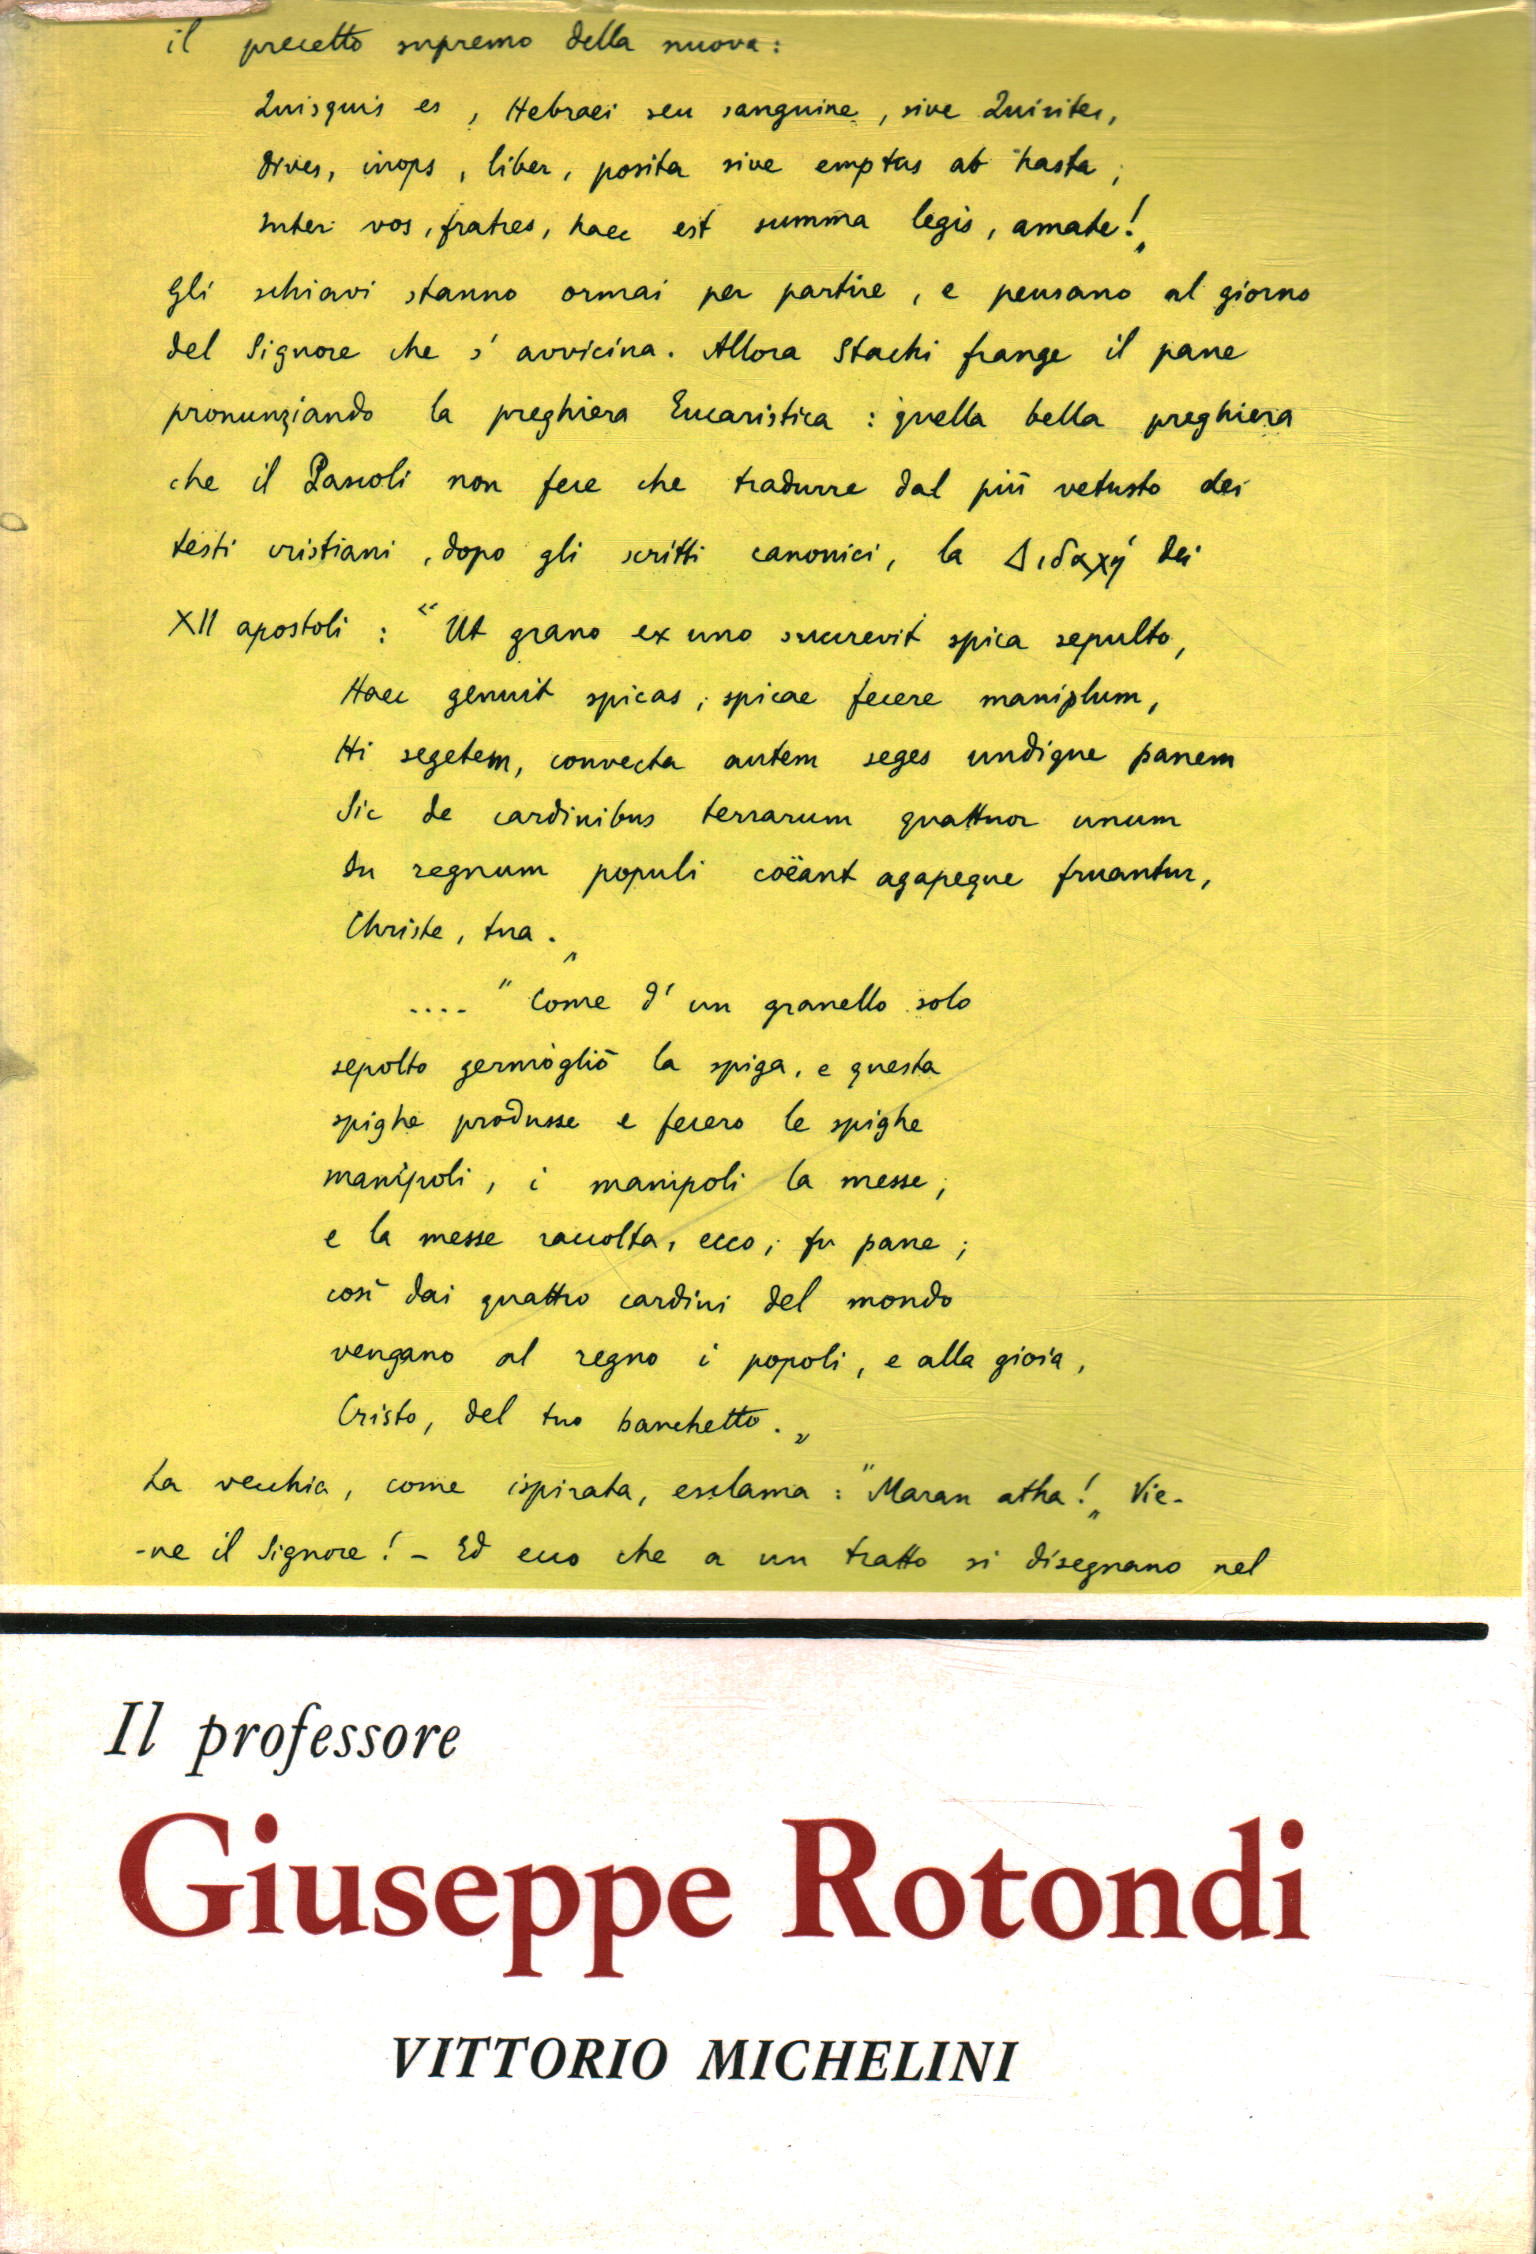 il precetto supremo della nuova:
Quisquis es, Hebraei seu sanguine, sive Quirites,
dives, inops, liber, posita sive emptus ab hasta,
Inter vos, fratres, haec est summa legis, amate!„
Gli schiavi stanno ormai per partire, e pensano al giorno
del Signore che s'avvicina. Allora Stachi frange il pane
pronunziando la preghiera Eucaristica: quella bella preghiera
che il Pascoli non fece che tradurre dal più vetusto dei
testi cristiani, dopo gli scritti canonici, la Διδαχή dei
XII apostoli: “Ut grano ex uno succrevit spica sepulto,
Haec genuit spicas; spicae fecere maniplum,
Hi segetem, convecta autem seges undique panem
Sic de cardinibus terrarum quattuor unum
In regnum populi coëant agapeque fruantur,
Christe, tua.„
.... "Come d'un granello solo
sepolto germògliò la spiga, e questa
spighe produsse e fecero le spighe
manipoli, i manipoli la messe;
e la messe raccolta, ecco, fu pane;
così dai quattro cardini del mondo
vengano al regno i popoli, e alla gioia,
Cristo, del tuo banchetto.„
La vecchia, come ispirata, esclama: "Maran atha!„ Vie-
-ne il Signore! - Ed ecco che a un tratto si disegnano nel
Il professore
Giuseppe Rotondi
VITTORIO MICHELINI